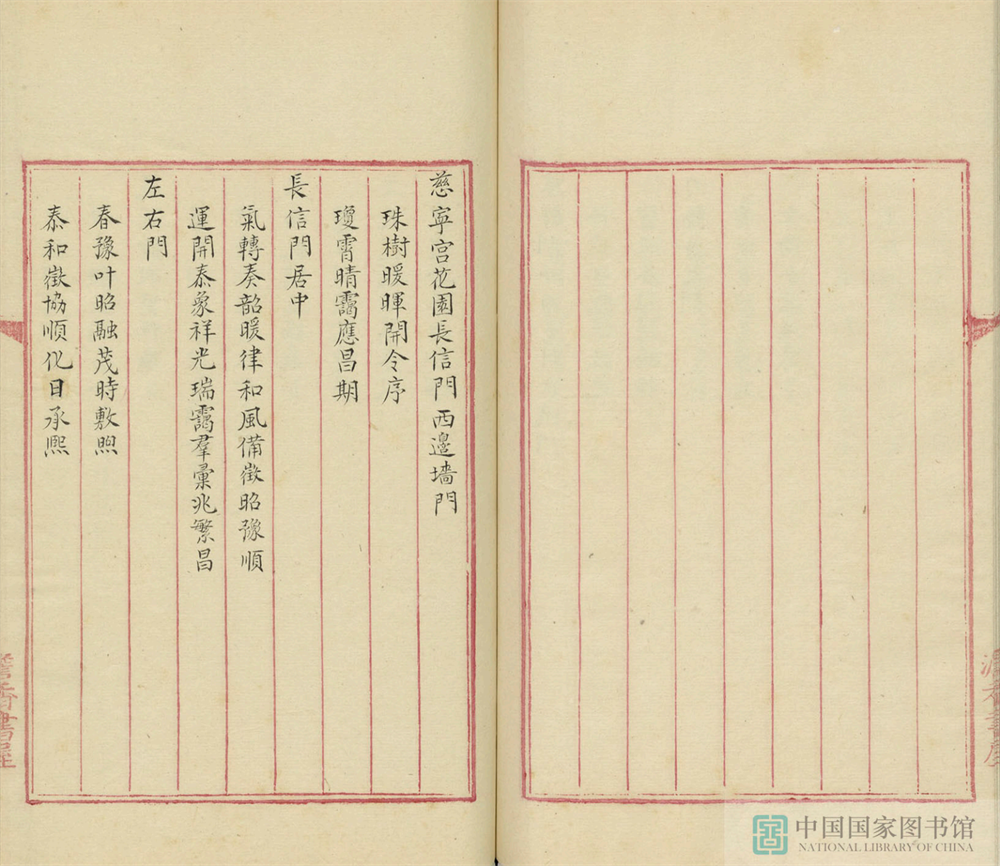 慈寧宮花園長信門西邉墻門
珠樹暖暉開令序
瓊霄晴靄應昌期
長信門居中
氣轉奏韶暖律和風備徵昭豫順
運開泰象祥光瑞靄羣彙兆繁昌
左右門
春豫叶昭融茂時敷煦
泰和徵協順化日承熙
中国国家图书馆
NATIONAL LIBRARY OF CHINA